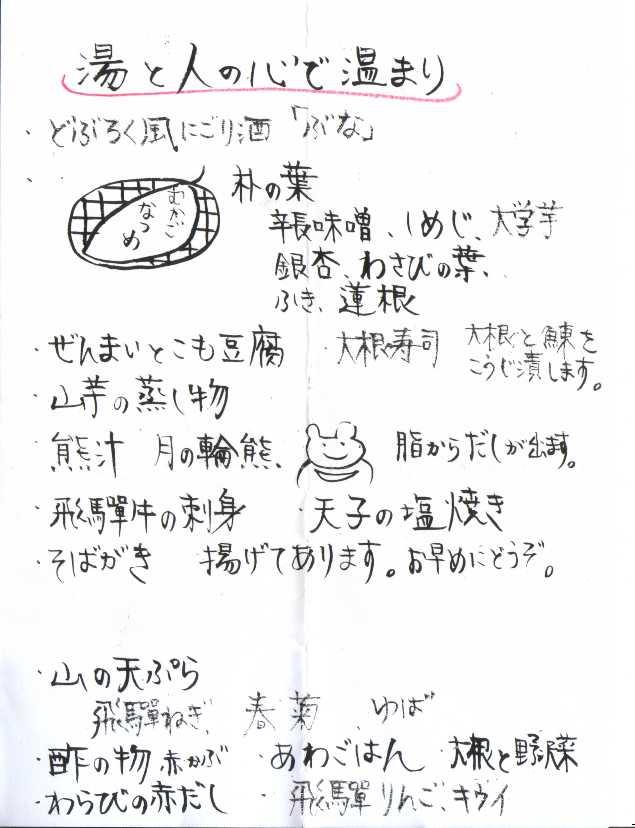 湯と人の心で温まり
・どぶろく風にごり酒「ぶな」
・
むかご
なつめ
朴の葉
味噌、しめじ、大学芋
銀杏、わさびの葉、
ふき、蓮根
・ぜんまいとこも豆腐 ・大根寿司 大根と鰊を
こうじ漬します。
・山芋の蒸し物
・熊汁 月の輪熊、 脂からだしが出ます。
・飛騨牛の刺身 ・天子の塩焼き
・そばがき 揚げてあります。お早めにどうぞ。
・山の天ぷら
飛騨ねぎ、春菊、ゆば
・酢の物 赤かぶ ・あわごはん ・大根と野沢菜
・わらびの赤だし ・飛騨りんご、キウイ